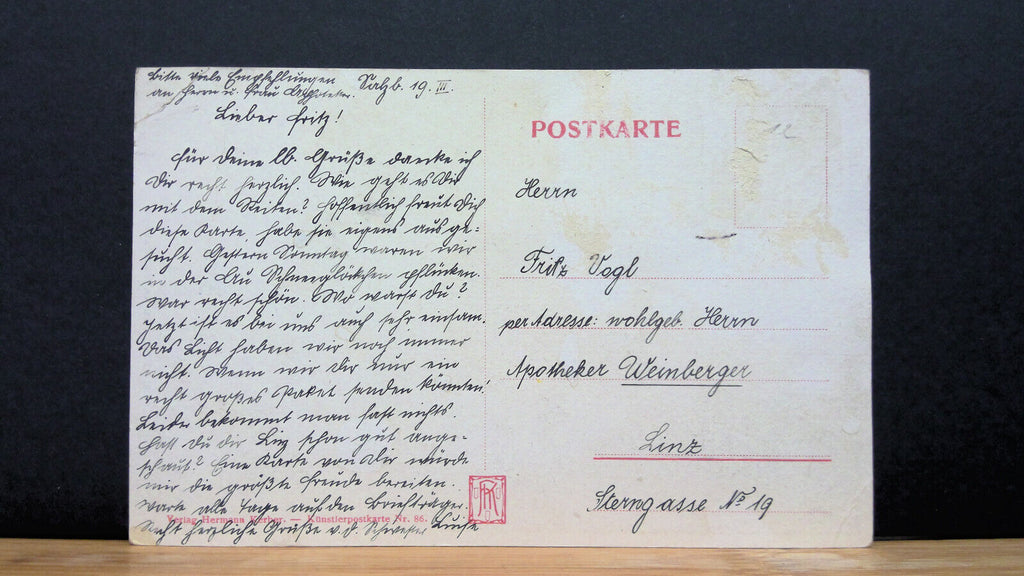 Bitte viele Empfehlungen
an Herrn u. Frau
Salzb. 19. III.
Lieber Fritz!
Für Deine lb. Grüße dancke ich
Dir recht herzlich. Wie geht es Dir
mit dem Reiten? Hoffentlich freut Dich
diese Karte, habe sie eigens ausge-
sucht. Gestern Sonntag waren wir
in der Au Schneeglöckchen pflücken.
War recht schön. Wo warst Du?
Jetzt ist es bei uns auch sehr einsam.
Das Licht haben wir noch immer
nicht. Wenn wir Dir nur ein
recht großes Paket senden könnten!
Leider bekommt man fast nichts.
Hast Du dir Linz schon gut ange-
schaut? Eine Karte von Dir würde
mir die größte Freude bereiten.
Warte alle Tage auf den Briefträger.
Recht herzliche Grüße v. d. Schwester Luise
Verlag Hermann Kerber. — Künstlerpostkarte Nr. 86.
POSTKARTE
12
Herrn
Fritz Vogl
per Adresse: wohlgeb. Herrn
Apotheker Weinberger
Linz
Sterngasse No 19